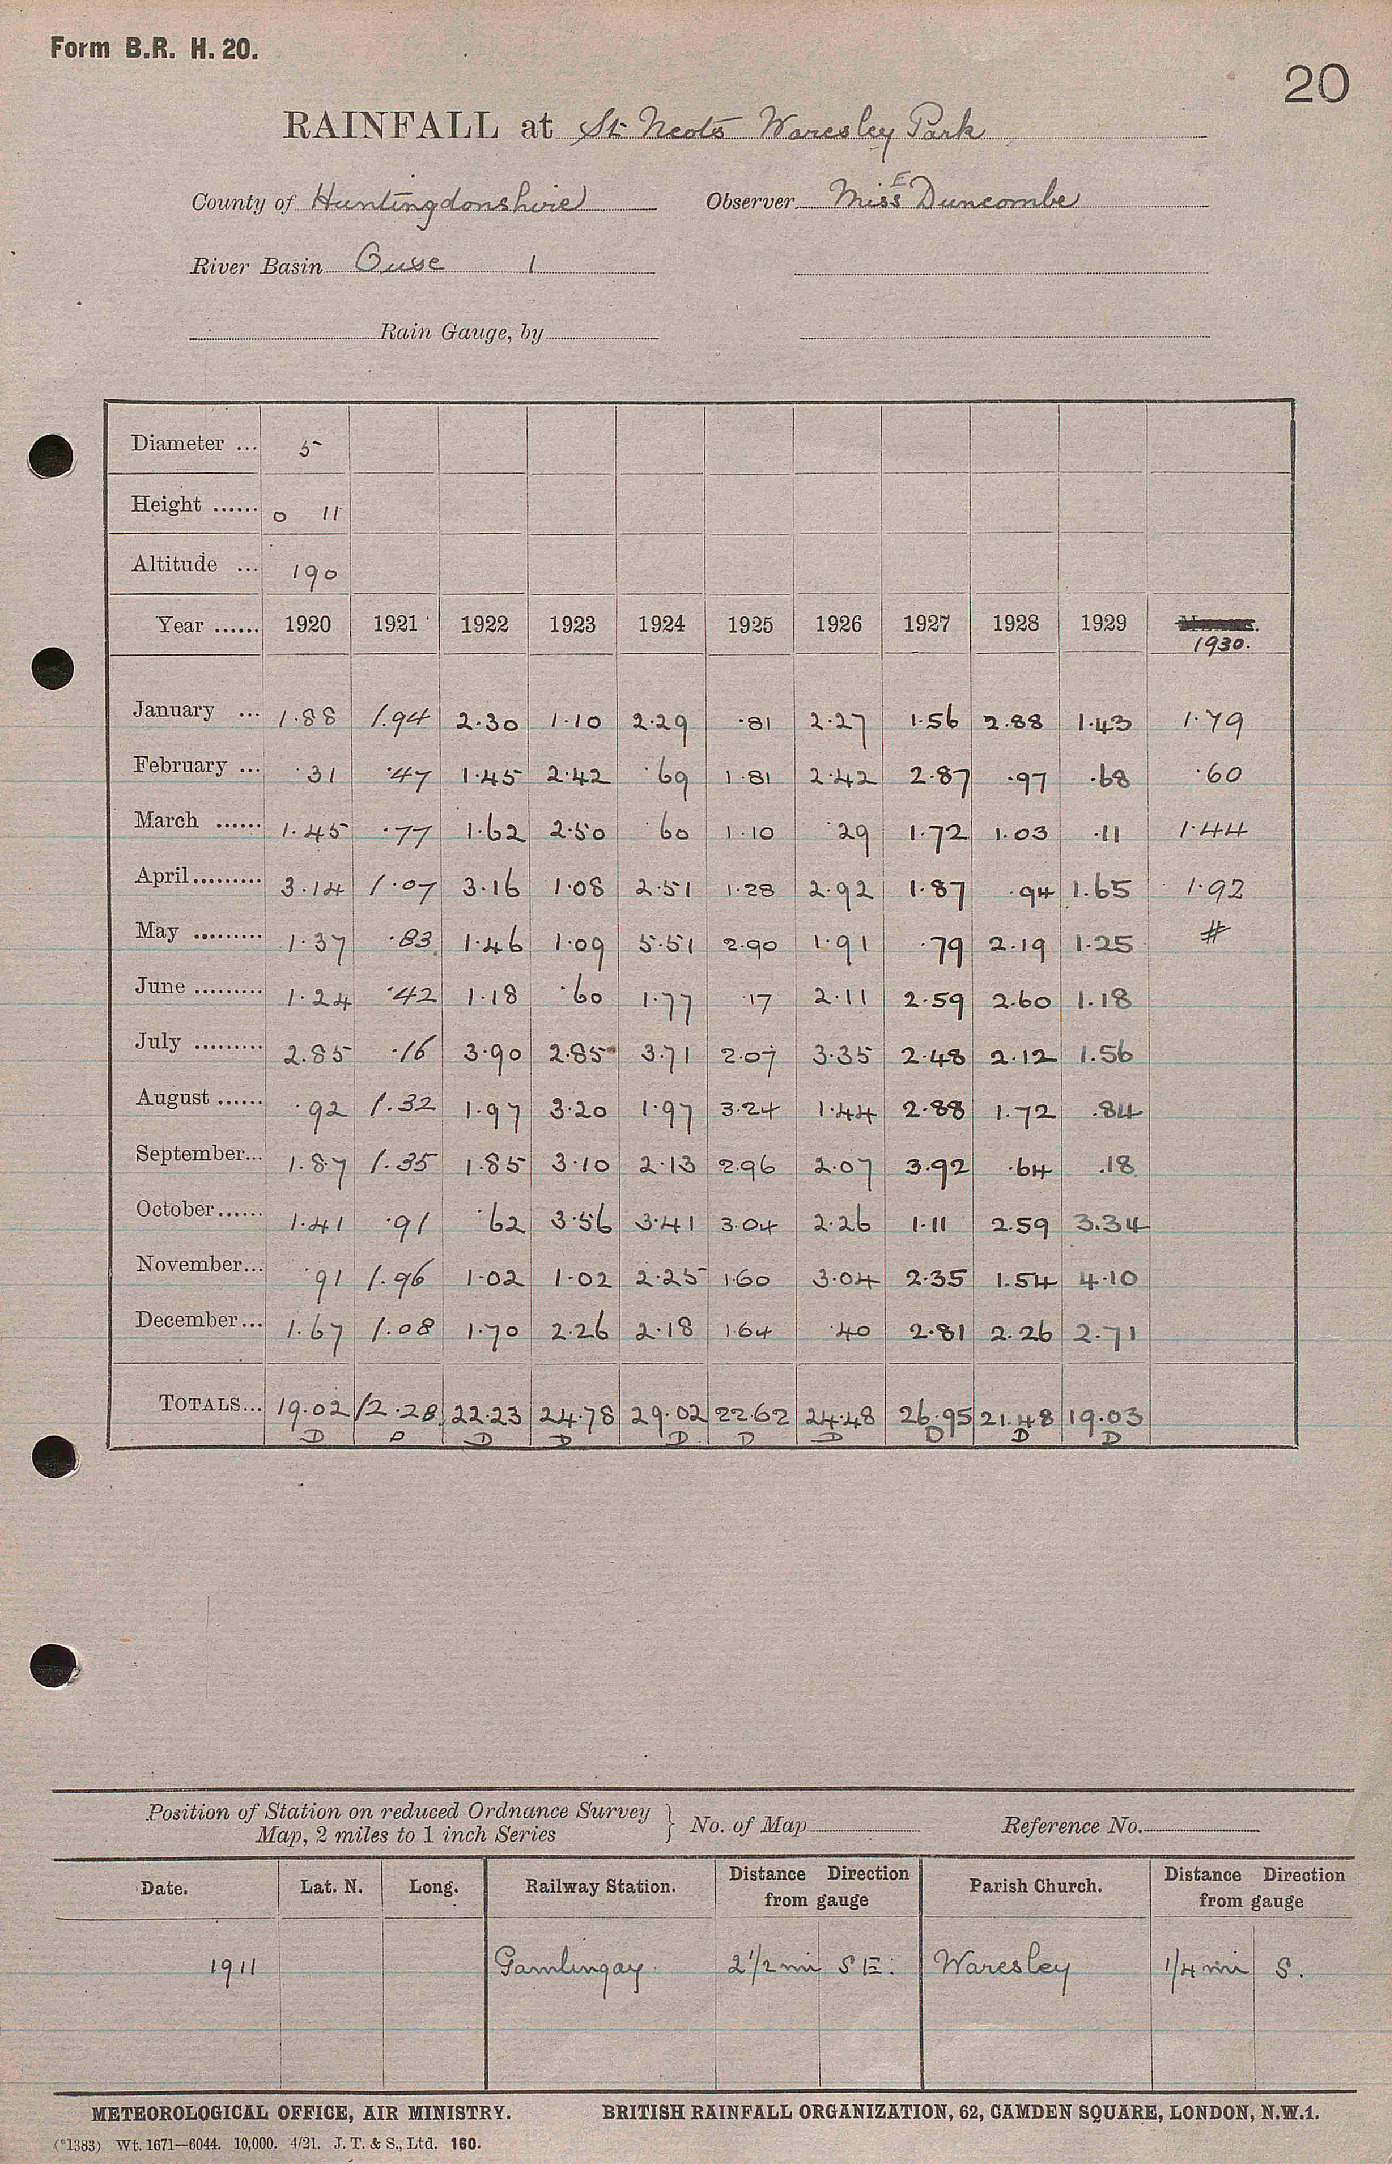 Form B.R. H. 20.
20
RAINFALL at St. Neots Waresley Park
County of Huntingdonshire Observer Miss E Duncombe
River Basin Ouse 1
Rain Gauge, by
Diameter ... 5
Height ...... 0 11
Altitude ... 190
Year ...... 1920 1921 1922 1923 1924 1925 1926 1927 1928 1929 1930.
January ... 1.88 1.94 2.30 1.10 2.29 .81 2.27 1.56 2.88 1.43 1.79
February ... .31 .47 1.45 2.42 .69 1.81 2.42 2.87 .97 .68 .60
March ...... 1.45 .77 1.62 2.50 .60 1.10 .29 1.72 1.03 .11 1.44
April ......... 3.14 1.07 3.16 1.08 2.51 1.28 2.92 1.87 .94 1.65 1.92
May ......... 1.37 .83 1.46 1.09 5.51 2.90 1.91 .79 2.19 1.25 #
June ......... 1.24 .42 1.18 .60 1.77 .17 2.11 2.59 2.60 1.18
July ......... 2.85 .16 3.90 2.85 3.71 2.07 3.35 2.48 2.12 1.56
August ...... .92 1.32 1.97 3.20 1.97 3.24 1.44 2.88 1.72 .84
September... 1.87 1.35 1.85 3.10 2.13 2.96 2.07 3.92 .64 .18
October ...... 1.41 .91 .62 3.56 3.41 3.04 2.26 1.11 2.59 3.34
November... .91 1.96 1.02 1.02 2.25 1.60 3.04 2.35 1.54 4.10
December... 1.67 1.08 1.70 2.26 2.18 1.64 .40 2.81 2.26 2.71
TOTALS... 19.02 12.28 22.23 24.78 29.02 22.62 24.48 26.95 21.48 19.03
D D D D D D D D D D
Position of Station on reduced Ordnance Survey Map, 2 miles to 1 inch Series } No. of Map Reference No.
Date. Lat. N. Long. Railway Station. Distance Direction from gauge Parish Church. Distance Direction from gauge
1911 Gamlingay 2 1/2 mi S E. Waresley 1/4 mi S.
METEOROLOGICAL OFFICE, AIR MINISTRY. BRITISH RAINFALL ORGANIZATION, 62, CAMDEN SQUARE, LONDON, N.W.1.
(*1383) Wt. 1671—6044. 10,000. 4/21. J. T. & S., Ltd. 160.